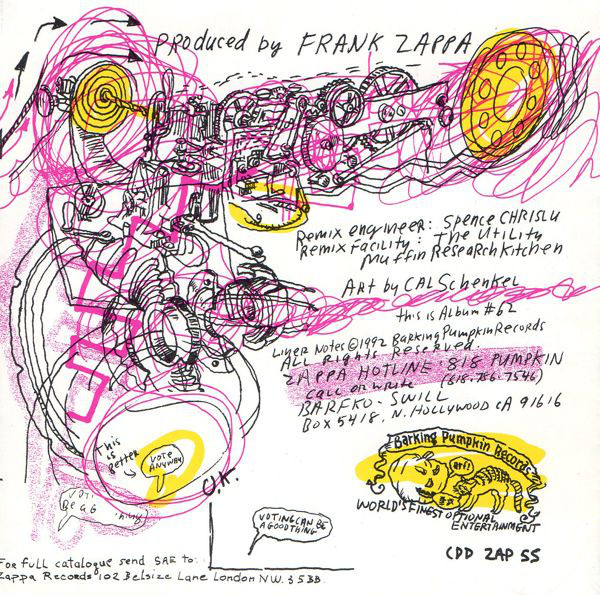 PRODUCED by FRANK ZAPPA
Remix engineer: Spence CHRISLU
Remix Facility: The Utility
Muffin Research Kitchen
Art by CAL Schenkel
this is Album #62
Liner Notes © 1992 Barking Pumpkin Records
ALL Rights Reserved.
ZAPPA HOTLINE: 818 PUMPKIN
CALL OR WRITE (818-786-7546)
BARFKO-SWILL
BOX 5418, N. HOLLYWOOD CA 91616
This is Better
VOTE ANYWAY
U.K.
VOTING CAN BE A GOOD THING
Barking Pumpkin Records
arf!
WORLD'S FINEST OPTIONAL
ENTERTAINMENT
CDD ZAP 55
For full catalogue send SAE to:
Zappa Records 102 Belsize Lane London NW. 3 5BB.